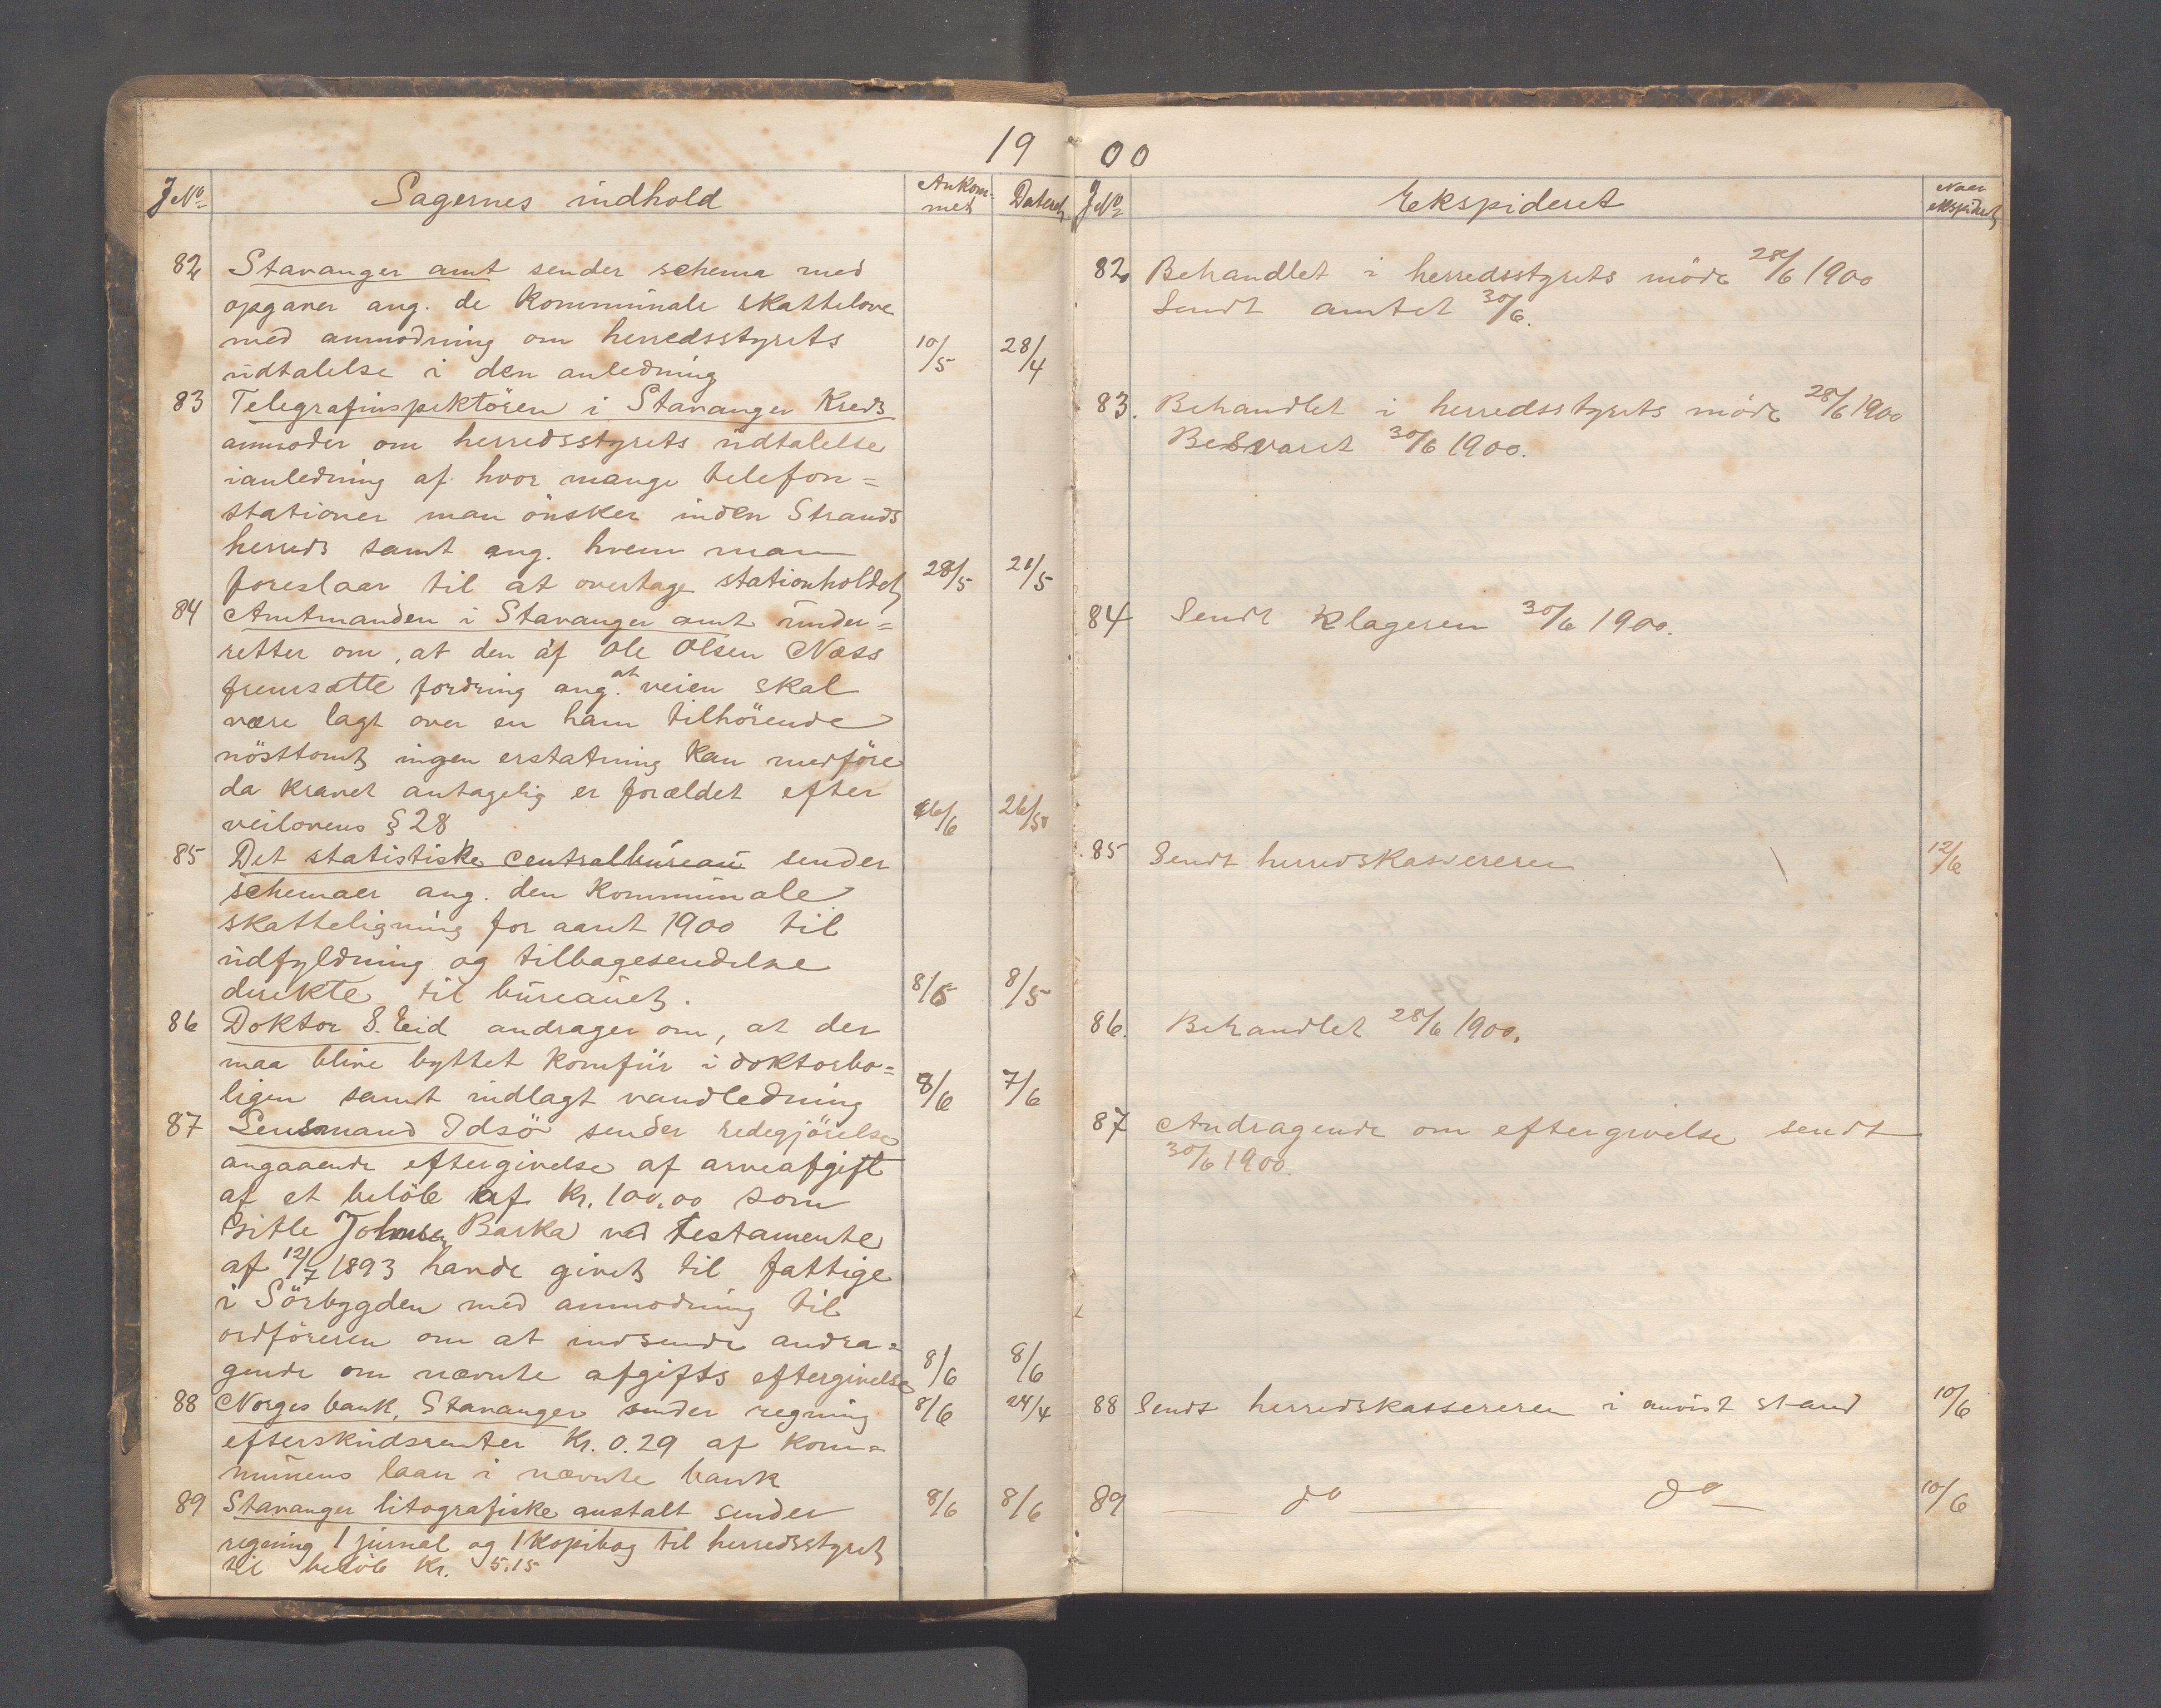 1900
J No Sagernes indhold Ankommet Dateret
82 Stavanger amt sender schema med
opgaver ang. de kommunale skattelove
med anmodning om herredsstyrets 10/5 28/4
udtalelse i den anledning
83 Telegrafinspektören i Stavanger Kreds
anmoder om herredsstyrets udtalelse
ianledning af hvor mange telefon=
stationer man önsker inden Strands
herreds samt ang. hvem man
foreslaar til at overtage stationholdet 28/5 21/5
84 Amtmanden i Stavanger amt under=
retter om, at den af Ole Olsen Næss
fremsatte fordring ang. at veien skal
være lagt over en ham tilhörende
nösttomt ingen erstatning kan medföre
da kravet antagelig er forældet efter
veilovens § 28 6/6 26/5
85 Det statistiske centralbureau sender
schemaer ang. den kommunale
skatteligning for aaret 1900 til
udfyldning og tilbagesendelse
direkte til bureauet. 8/6 8/5
86 Doktor S. Eid andrager om, at der
maa blive byttet komfur i doktorbo=
ligen samt indlagt vandledning 8/6 7/6
87 Lensmand Idsö sender redegjörelse
angaaende eftergivelse af arveafgift
af et belöb af kr. 100,00 som
Gitle Johnsen Barka ved testamente
af 12/7 1893 havde givet til fattige
i Sörbygden med anmodning til
ordföreren om at indsende andra=
gende om nævnte afgifts eftergivelse 8/6 8/6
88 Norges bank, Stavanger sender regning 8/6 24/4
efterskudsrenter Kr. 0.29 af kom=
munens laan i nævnte bank
89 Stavanger litografiske anstalt sender 8/6 8/6
regning 1 jurnal og 1 kopibog til herredsstyret
til belöb Kr. 5.15
J No Ekspideret Naar ekspideret
82 Behandlet i herredsstyrets möde 28/6 1900
Sendt amtet 30/6.
83. Behandlet i herredsstyrets möde 28/6 1900
Besvaret 30/6 1900.
84 Sendt klageren 30/6 1900.
85 Sendt herredskassereren 12/6
86. Behandlet 28/6 1900.
87 Andragende om eftergivelse sendt
30/6 1900.
88 Sendt herredskassereren i anvist stand 10/6
89 — do — do — 10/6